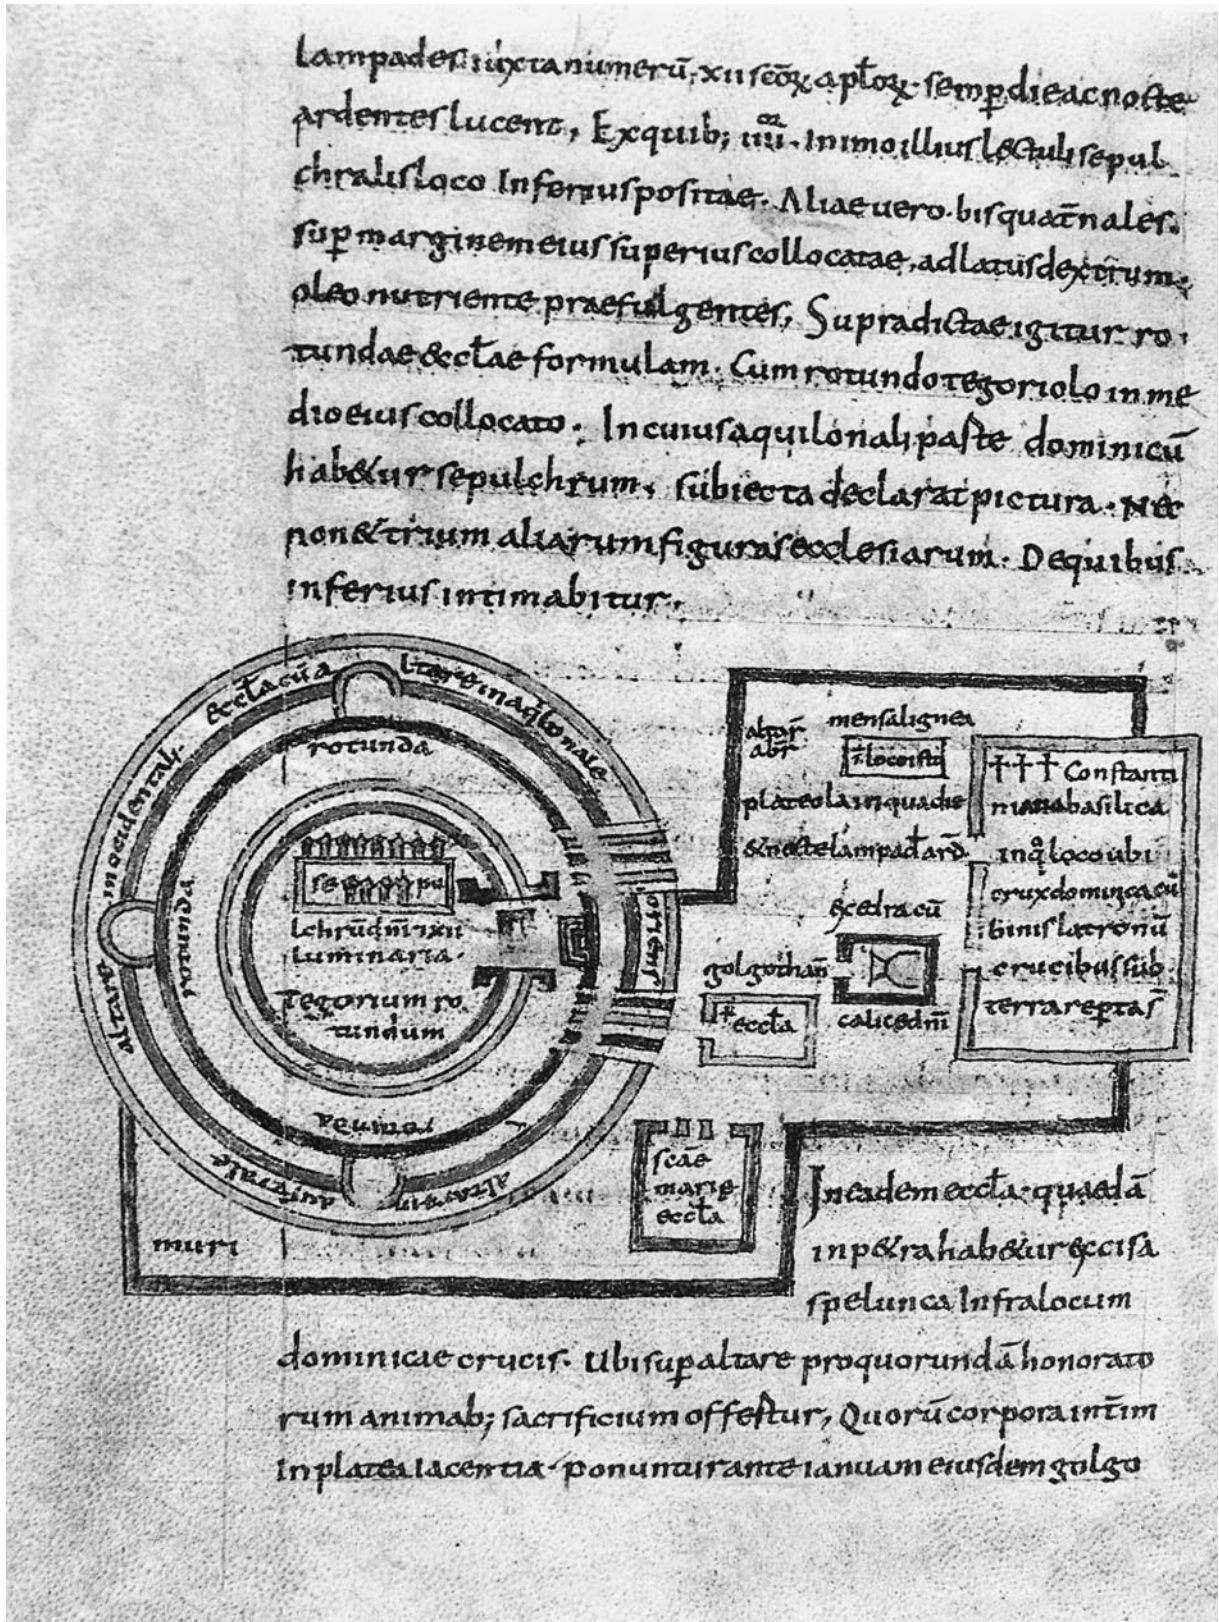 lampades iuxta numerū. xii scōꝝ apl̄oꝝ. semꝑ die ac nocte
ardentes lucent, Ex quib; iiii.or In imo illius lectuli sepul
chralis loco Inferius positae. Aliae uero. bis quat̄nales.
suꝑ marginem eius superius collocatae, ad latus dextrum.
oleo nutriente praefulgentes, Supradictae igitur ro
tundae eccl̄ae formulam. Cum rotundo tegoriolo in me
dio eius collocato. In cuius aquilonali parte dominicū
hab&ur sepulchrum. subiecta declarat pictura. Nec
non & trium aliarum figuras ecclesiarum. De quibus
inferius intimabitur.
eccl̄a cū a
ltare in aq̇lonale
in occidentali
altare
rotunda
rotunda
rotunda
altare in
australe
se pu
lchrū dn̄i ixii
luminaria.
Tegorium ro
tundum
oriens
muri
altar̄
abr̄
mensa lignea
ī loco isto
plateola in qua die
& nocte lampad̄ ard̄
exedra cū
calice dn̄i
golgothan̄
eccl̄a
††† Constanti
niana basilica
in q̇ loco ubi
crux dominica cū
binis latronū
crucibus sub
terra reꝑta s̄
scāe
marie
eccl̄a
In eadem eccl̄a. quaedā
in p&ra hab&ur excisa
spelunca Infra locum
dominicae crucis. Ubi suꝑ altare pro quorundā honorato
rum animab; sacrificium offertur, Quorū corpora int̄im
In platea iacentia. ponuntur ante ianuam eiusdem golgo